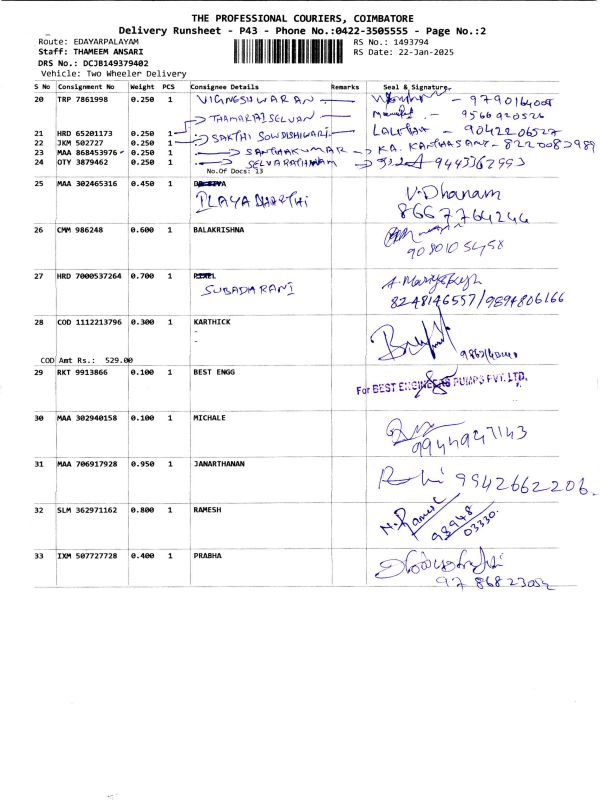 THE PROFESSIONAL COURIERS, COIMBATORE
Delivery Runsheet - P43 - Phone No.:0422-3505555 - Page No.:2
Route: EDAYARPALAYAM RS No.: 1493794
Staff: THAMEEM ANSARI RS Date: 22-Jan-2025
DRS No.: DCJB149379402
Vehicle: Two Wheeler Delivery
S No Consignment No Weight PCS Consignee Details Remarks Seal & Signature
20 TRP 7861998 0.250 1 VIGNESHWARAN - 9790164005
THAMARAI SELVAN - 9566940526
21 HRD 65201173 0.250 1 SAKTHI SOWDISHWARI - LALITHA - 9042206527
22 JKM 502727 0.250 1
23 MAA 868453976 0.250 1 SANTHAKUMAR - KA. KANTHASAMI - 8220083989
24 OTY 3879462 0.250 1 SELVARATHINAM 9443362993
No.Of Docs: 13
25 MAA 302465316 0.450 1
V. Dhanam
8667764244
26 CMM 986248 0.600 1 BALAKRISHNA
27 HRD 7000537264 0.700 1
SUBADHARANI
8248146557/9894806166
28 COD 1112213796 0.300 1 KARTHICK
-
-
COD Amt Rs.: 529.00
29 RKT 9913866 0.100 1 BEST ENGG
For BEST ENGINEERS PUMPS PVT. LTD.
30 MAA 302940158 0.100 1 MICHALE
9944947143
31 MAA 706917928 0.950 1 JANARTHANAN
9942662206.
32 SLM 362971162 0.800 1 RAMESH
N. Ramesh
98948
03330.
33 IXM 507727728 0.400 1 PRABHA